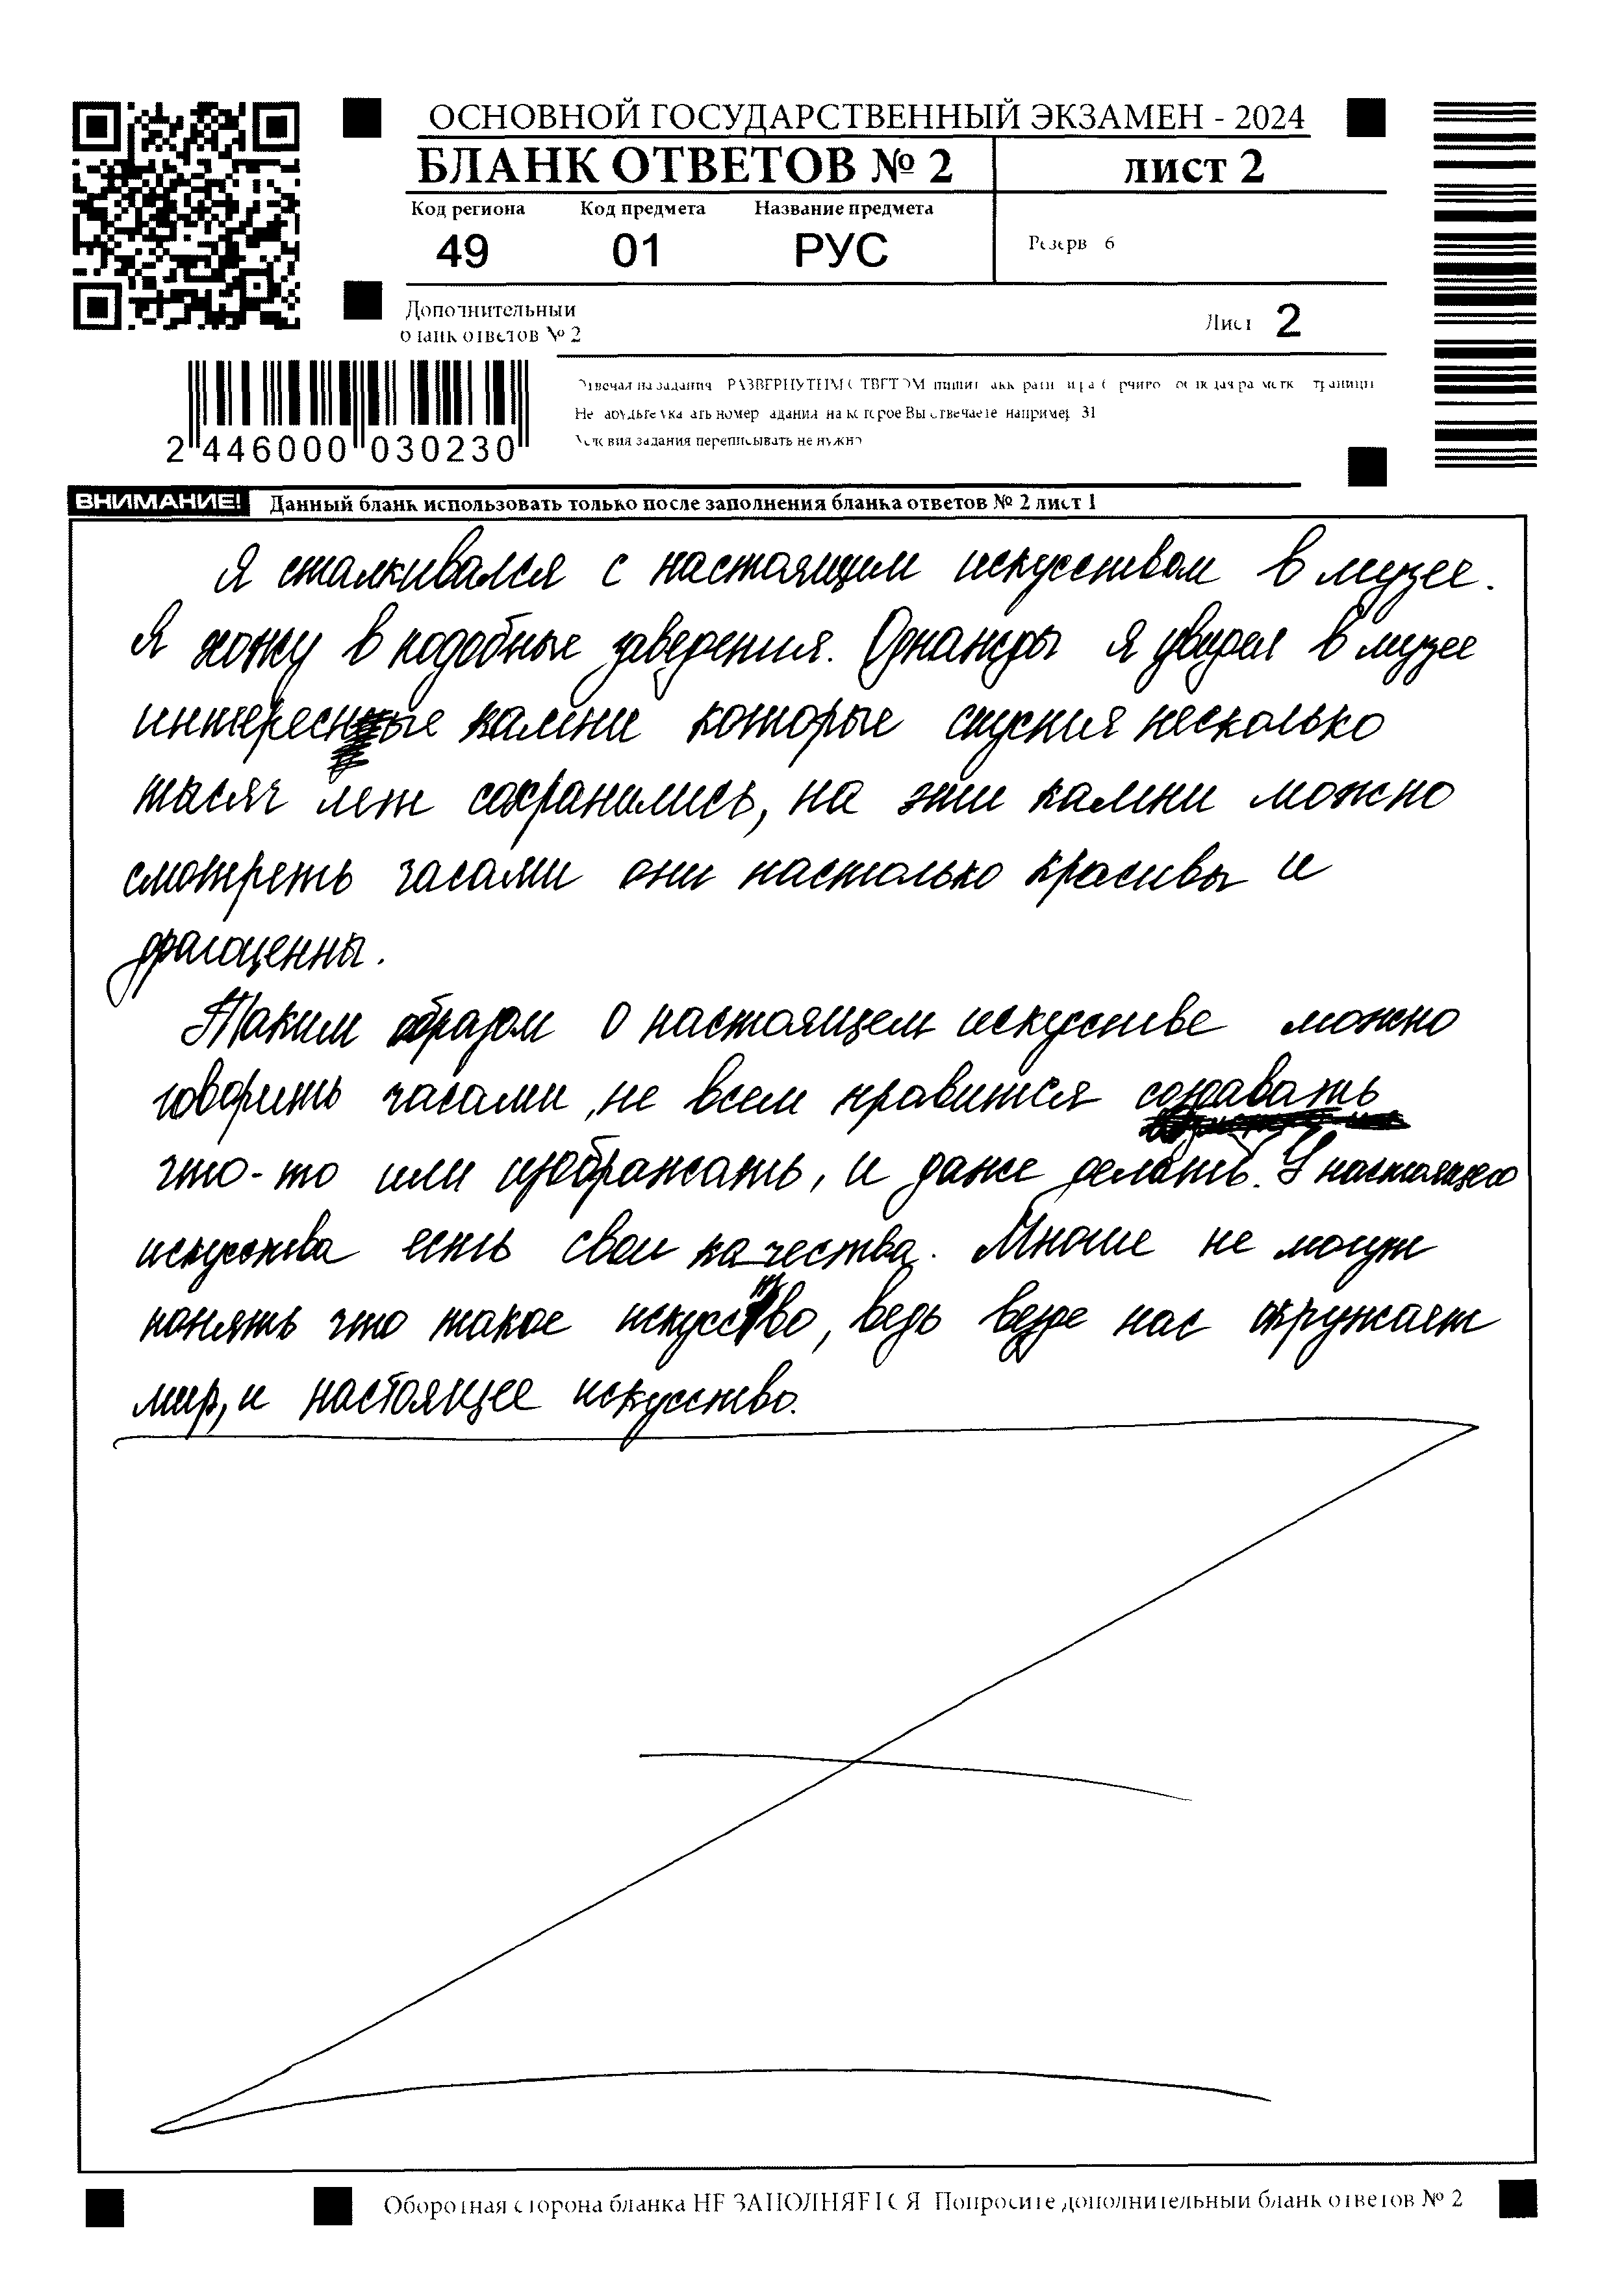 ОСНОВНОЙ ГОСУДАРСТВЕННЫЙ ЭКЗАМЕН - 2024
БЛАНК ОТВЕТОВ № 2
лист 2
Код региона Код предмета Название предмета
49 01 РУС
Резерв 6
Дополнительный
бланк ответов № 2
Лист 2
2 446000 030230
Отвечая на задания РАЗВЕРНУТЫМ ОТВЕТОМ пишите
Не забудьте указать номер задания на которое Вы отвечаете например 31
Условия задания переписывать не нужно
ВНИМАНИЕ! Данный бланк использовать только после заполнения бланка ответов № 2 лист 1
Я сталкивался с настоящим искусством в музее.
Я хожу в подобные заведения. Однажды я увидел в музее
интересные камни которые спустя несколько
тысяч лет сохранились, на эти камни можно
смотреть часами они настолько красивы и
драгоценны.
Таким образом о настоящем искусстве можно
говорить часами, не всем нравится создавать
что-то или изображать, и даже делать. У настоящего
искусства есть свои качества. Многие не могут
понять что такое искусство, ведь везде нас окружает
мир, и настоящее искусство.
Оборотная сторона бланка НЕ ЗАПОЛНЯЕТСЯ Попросите дополнительный бланк ответов № 2